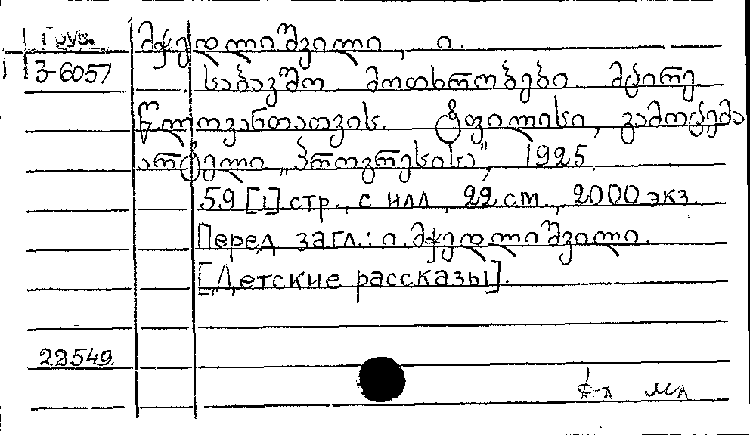 Груз.
3-6057
მჭედლიშვილი, ი.
საბავშო მოთხრობები მცირე
წლოვანთათვის. ტფილისი, გამოცემა
არტელი „პროგრესისა“, 1925.
59 [1] стр., с илл., 22 см., 2000 экз.
Перед загл.: ი. მჭედლიშვილი.
[Детские рассказы].
22549